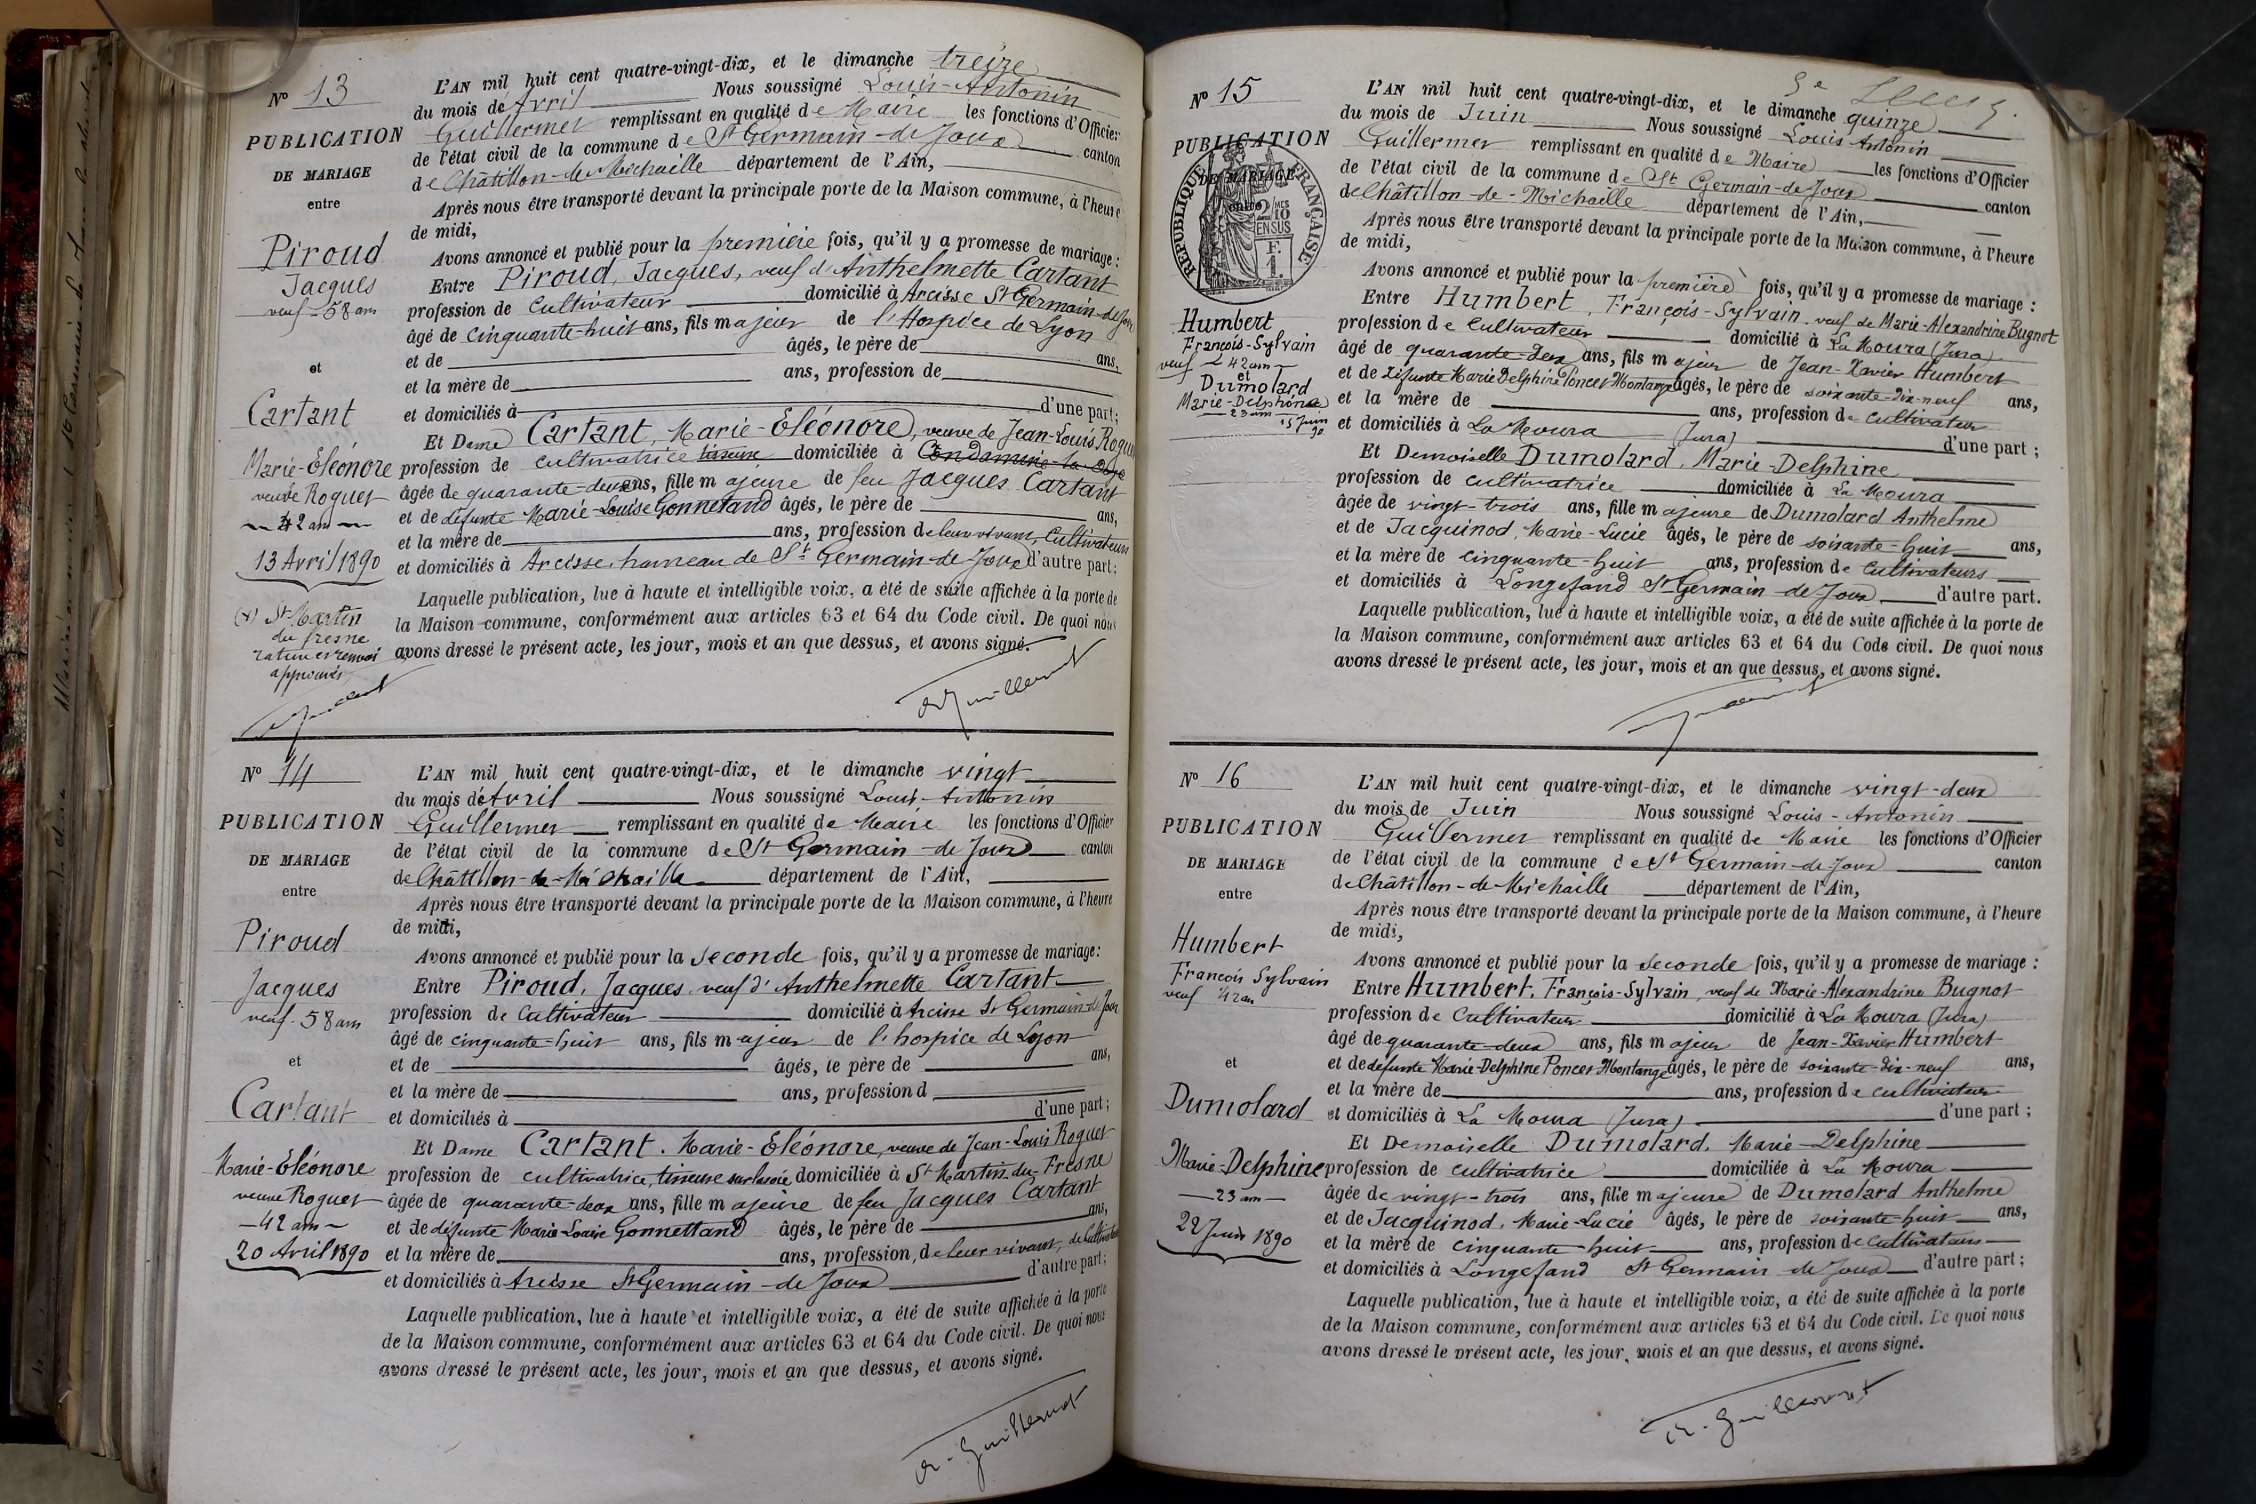 N° 13
PUBLICATION
DE MARIAGE
entre
Piroud
Jacques
veuf - 58 ans
et
Cartant
Marie-Eléonore
veuve Roguet
42 ans
13 Avril 1890
(x) St Martin
du fresne
rature et renvoi
approuvés
L'AN mil huit cent quatre-vingt-dix, et le dimanche treize
du mois de Avril Nous soussigné Louis-Antonin
Guillermet remplissant en qualité de Maire les fonctions d'Officier
de l'état civil de la commune de St Germain-de-Joux canton
de Châtillon-de-Michaille département de l'Ain,
Après nous être transporté devant la principale porte de la Maison commune, à l'heure
de midi,
Avons annoncé et publié pour la première fois, qu'il y a promesse de mariage :
Entre Piroud, Jacques, veuf d'Anthelmette Cartant
profession de Cultivateur domicilié à Arcisse St Germain-de-Joux
âgé de cinquante-huit ans, fils majeur de l'Hospice de Lyon
et de âgés, le père de ans,
et la mère de ans, profession de
et domiciliés à d'une part;
Et Dame Cartant, Marie-Eléonore, veuve de Jean-Louis Roguet
profession de cultivatrice tisseuse domiciliée à Condamine-la-Doye
âgée de quarante-deux ans, fille majeure de feu Jacques Cartant
et de défunte Marie-Louise Gonnetand âgés, le père de ans,
et la mère de ans, profession de leur vivant, Cultivateurs
et domiciliés à Arcisse, hameau de St Germain-de-Joux d'autre part;
Laquelle publication, lue à haute et intelligible voix, a été de suite affichée à la porte de
la Maison commune, conformément aux articles 63 et 64 du Code civil. De quoi nous
avons dressé le présent acte, les jour, mois et an que dessus, et avons signé.
A. Guillermet
N° 14
PUBLICATION
DE MARIAGE
entre
Piroud
Jacques
veuf - 58 ans
et
Cartant
Marie-Eléonore
veuve Roguet
42 ans
20 Avril 1890
L'AN mil huit cent quatre-vingt-dix, et le dimanche vingt
du mois de Avril Nous soussigné Louis-Antonin
Guillermet remplissant en qualité de Maire les fonctions d'Officier
de l'état civil de la commune de St Germain-de-Joux canton
de Châtillon-de-Michaille département de l'Ain,
Après nous être transporté devant la principale porte de la Maison commune, à l'heure
de midi,
Avons annoncé et publié pour la seconde fois, qu'il y a promesse de mariage:
Entre Piroud, Jacques, veuf d'Anthelmette Cartant
profession de Cultivateur domicilié à Arcisse St Germain-de-Joux
âgé de cinquante-huit ans, fils majeur de l'hospice de Lyon
et de âgés, le père de ans,
et la mère de ans, profession d
et domiciliés à d'une part;
Et Dame Cartant, Marie-Eléonore, veuve de Jean-Louis Roguet
profession de cultivatrice, tisseuse sur la soie domiciliée à St Martin-du-Fresne
âgée de quarante-deux ans, fille majeure de feu Jacques Cartant
et de défunte Marie-Louise Gonnettand âgés, le père de ans,
et la mère de ans, profession de leur vivant, de Cultivateurs
et domiciliés à Arcisse St Germain-de-Joux d'autre part;
Laquelle publication, lue à haute et intelligible voix, a été de suite affichée à la porte
de la Maison commune, conformément aux articles 63 et 64 du Code civil. De quoi nous
avons dressé le présent acte, les jour, mois et an que dessus, et avons signé.
A. Guillermet
N° 15
PUBLICATION
DE MARIAGE
entre
RÉPUBLIQUE FRANÇAISE
2/10 EN SUS
F. 1.
Humbert
François-Sylvain
veuf 42 ans
et
Dumolard
Marie-Delphine
23 ans
15 Juin
90
L'AN mil huit cent quatre-vingt-dix, et le dimanche quinze
du mois de Juin Nous soussigné Louis Antonin
Guillermet remplissant en qualité de Maire les fonctions d'Officier
de l'état civil de la commune de St Germain-de-Joux
de Châtillon-de-Michaille département de l'Ain, canton
Après nous être transporté devant la principale porte de la Maison commune, à l'heure
de midi,
Avons annoncé et publié pour la première fois, qu'il y a promesse de mariage :
Entre Humbert, François-Sylvain, veuf de Marie-Alexandrine Bugnot
profession de Cultivateur domicilié à La Moura (Jura)
âgé de quarante-deux ans, fils majeur de Jean-Xavier Humbert
et de défunte Marie Delphine Poncet Montange âgés, le père de soixante-dix-neuf ans,
et la mère de ans, profession de Cultivateur
et domiciliés à La Moura (Jura) d'une part ;
Et Demoiselle Dumolard, Marie-Delphine
profession de cultivatrice domiciliée à La Moura
âgée de vingt-trois ans, fille majeure de Dumolard Anthelme
et de Jacquinod, Marie-Lucie âgés, le père de soixante-huit ans,
et la mère de cinquante-huit ans, profession de Cultivateurs
et domiciliés à Longefand St Germain-de-Joux d'autre part.
Laquelle publication, lue à haute et intelligible voix, a été de suite affichée à la porte de
la Maison commune, conformément aux articles 63 et 64 du Code civil. De quoi nous
avons dressé le présent acte, les jour, mois et an que dessus, et avons signé.
N° 16
PUBLICATION
DE MARIAGE
entre
Humbert
François Sylvain
veuf 42 ans
et
Dumolard
Marie-Delphine
23 ans
22 Juin 1890
L'AN mil huit cent quatre-vingt-dix, et le dimanche vingt-deux
du mois de Juin Nous soussigné Louis-Antonin
Guillermet remplissant en qualité de Maire les fonctions d'Officier
de l'état civil de la commune de St Germain-de-Joux canton
de Châtillon-de-Michaille département de l'Ain,
Après nous être transporté devant la principale porte de la Maison commune, à l'heure
de midi,
Avons annoncé et publié pour la seconde fois, qu'il y a promesse de mariage :
Entre Humbert, François-Sylvain, veuf de Marie-Alexandrine Bugnot
profession de Cultivateur domicilié à La Moura (Jura)
âgé de quarante-deux ans, fils majeur de Jean-Xavier Humbert
et de défunte Marie-Delphine Poncet Montange âgés, le père de soixante-dix-neuf ans,
et la mère de ans, profession de cultivateur
et domiciliés à La Moura (Jura) d'une part ;
Et Demoiselle Dumolard, Marie-Delphine
profession de cultivatrice domiciliée à La Moura
âgée de vingt-trois ans, fille majeure de Dumolard Anthelme
et de Jacquinod, Marie-Lucie âgés, le père de soixante-huit ans,
et la mère de cinquante-huit ans, profession de Cultivateurs
et domiciliés à Longefand St Germain-de-Joux d'autre part;
Laquelle publication, lue à haute et intelligible voix, a été de suite affichée à la porte
de la Maison commune, conformément aux articles 63 et 64 du Code civil. De quoi nous
avons dressé le présent acte, les jour, mois et an que dessus, et avons signé.
A. Guillermet